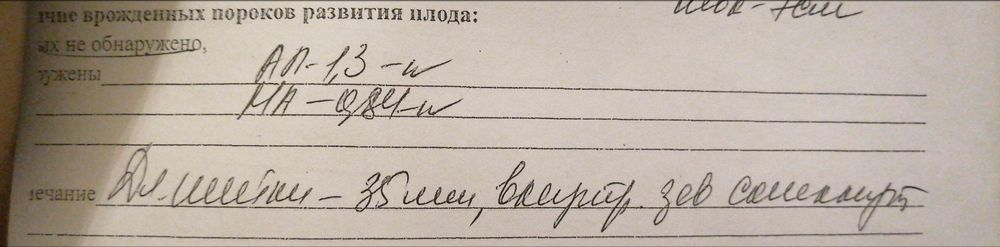 чие врожденных пороков развития плода:
ых не обнаружено,
ружены АП-1,3-N
МА-0,84-N
мечание Дл. шейки - 35 мм, внутр. зев сомкнут